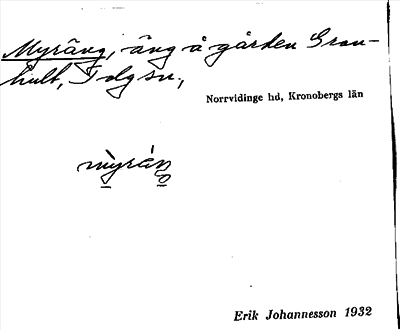 Myräng, äng å gården Gran-
hult, Tolg sn.,
Norrvidinge hd, Kronobergs län
myräŋ
Erik Johannesson 1932